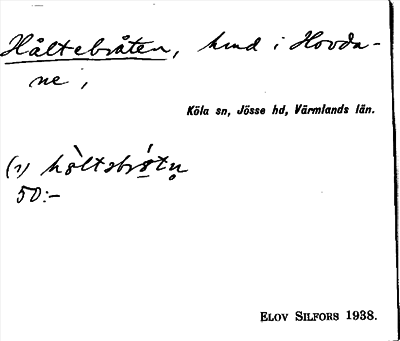 Håltebråten, hmd i Hovda-
ne;
Köla sn, Jösse hd, Värmlands län.
(1) hòltəbrótn̥
50:-
ELOV SILFORS 1938.